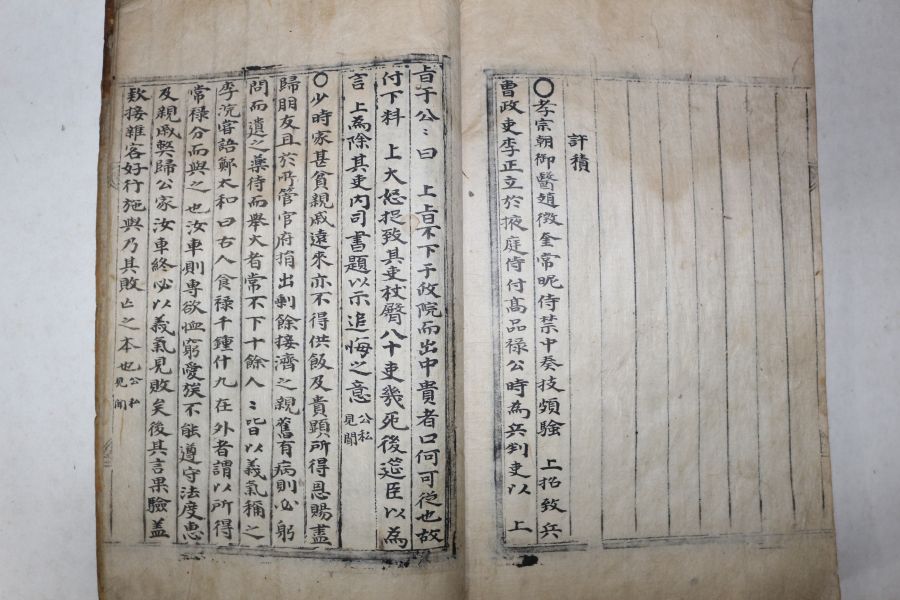 許積
○孝宗朝御醫趙徵奎常昵侍禁中奏技頻驗 上招致兵
曹政吏李正立於掖庭侍付高品祿公時為兵判吏以 上
旨于公〻曰 上旨不下于政院而出中貴者口何可從也故
付下料 上大怒捉致其吏杖臀八十吏幾死後筵臣以為
言 上為除其吏內司書題以示追悔之意 公私見聞
○少時家甚貧親戚遠來亦不得供飯及貴顯所得恩賜盡
歸朋友且於所管官府捐出剩餘接濟之親舊有病則必躬
問而遺之藥待而舉火者常不下十餘人〻皆以義氣稱之
李浣嘗語鄭太和曰古人食祿千鍾什九在外者謂以所得
常祿分而與之也汝車則專欲恤窮愛族不能遵守法度惠
及親戚契歸公家汝車終必以義氣見敗矣後其言果驗蓋
款接雜客好行施與乃其敗亡之本也 公私見聞